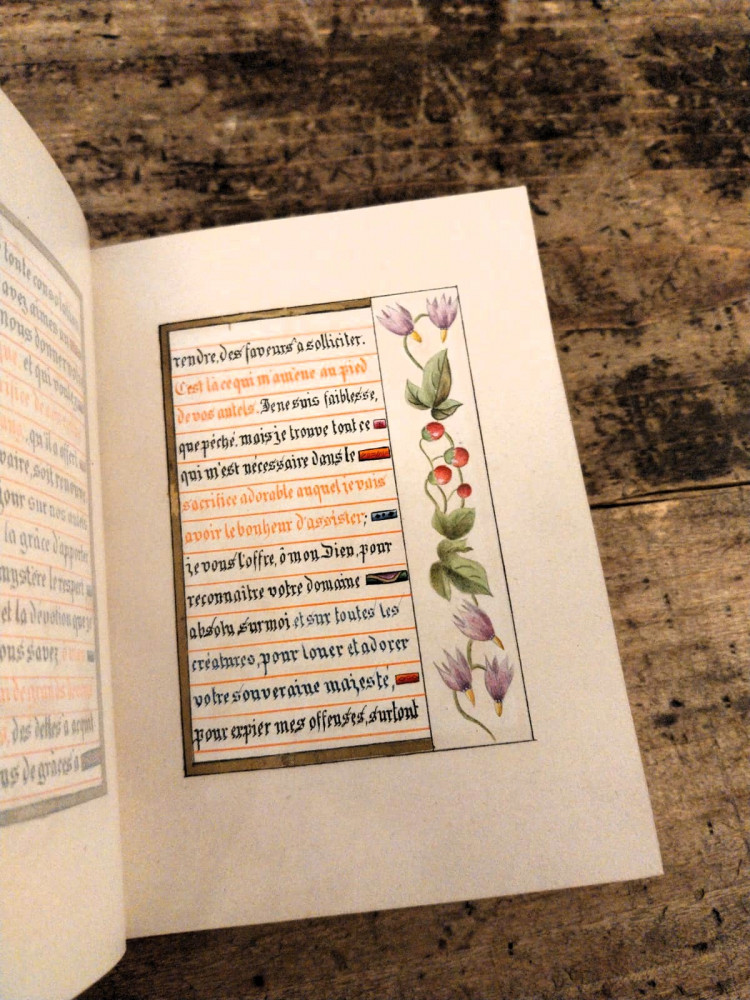 toute consolation
avez aimé
nous donner
et qui voulez
qu'il a offert
vaire, soit
jour sur nos autels
la grâce d'apporter
mystère le respect
et la dévotion que je
ous savez
n de grands
des dettes à acquit
us de grâces à
rendre, des faveurs à solliciter.
C'est là ce qui m'amène au pied
de vos autels. Je ne suis faiblesse,
que péché, mais je trouve tout ce
qui m'est nécessaire dans le
sacrifice adorable auquel je vais
avoir le bonheur d'assister;
je vous l'offre, ô mon Dieu, pour
reconnaître votre domaine
absolu sur moi et sur toutes les
créatures, pour louer et adorer
votre souveraine majesté,
pour expier mes offenses, surtout